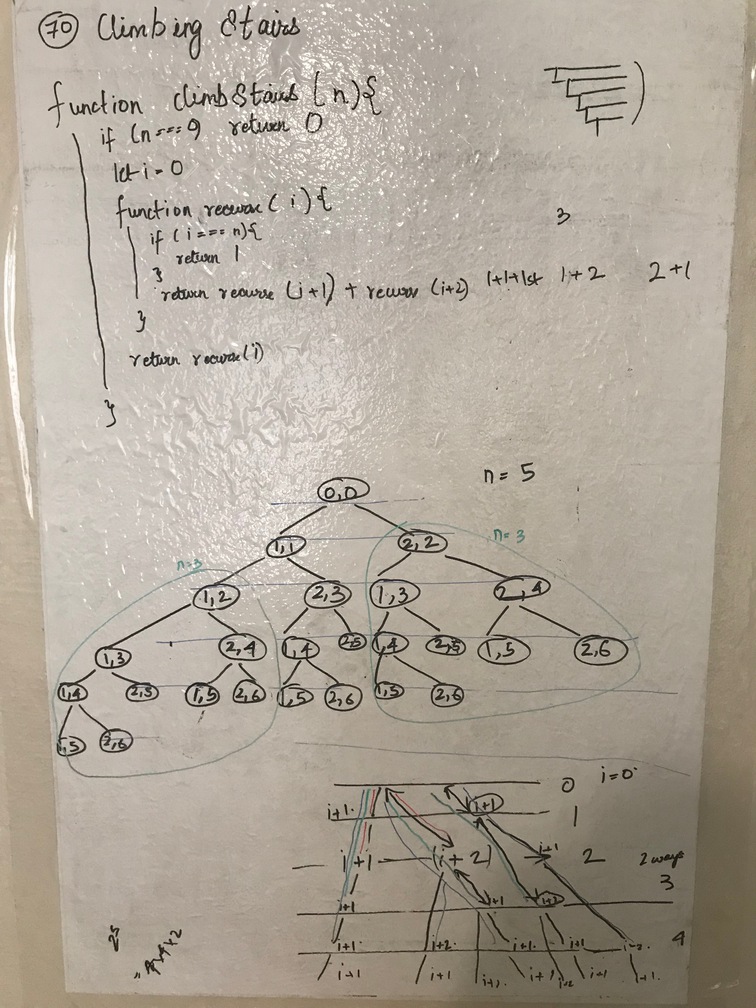 70 Climbing Stairs
function climbStairs (n){
if (n === 0) return 0
let i = 0
function recurse (i){
if (i === n){
return 1
}
return recurse (i+1) + recurse (i+2)
}
return recurse (i)
}
3
1+1+1st 1+2 2+1
n = 5
0,0
1,1 2,2 n=3
n=3
1,2 2,3 1,3 2,4
1,3 2,4 1,4 2,5 1,4 2,5 1,5 2,6
1,4 2,5 1,5 2,6 1,5 2,6 1,5 2,6
1,5 2,6
0 i=0
i+1 i+1 1
i+1 (i+2) i+1 2 2 ways
3
i+1 i+1 i+2
i+1 i+2 i+1 i+1 i+2 4
i+1 i+1 i+2 i+1 i+2 i+1 i+1